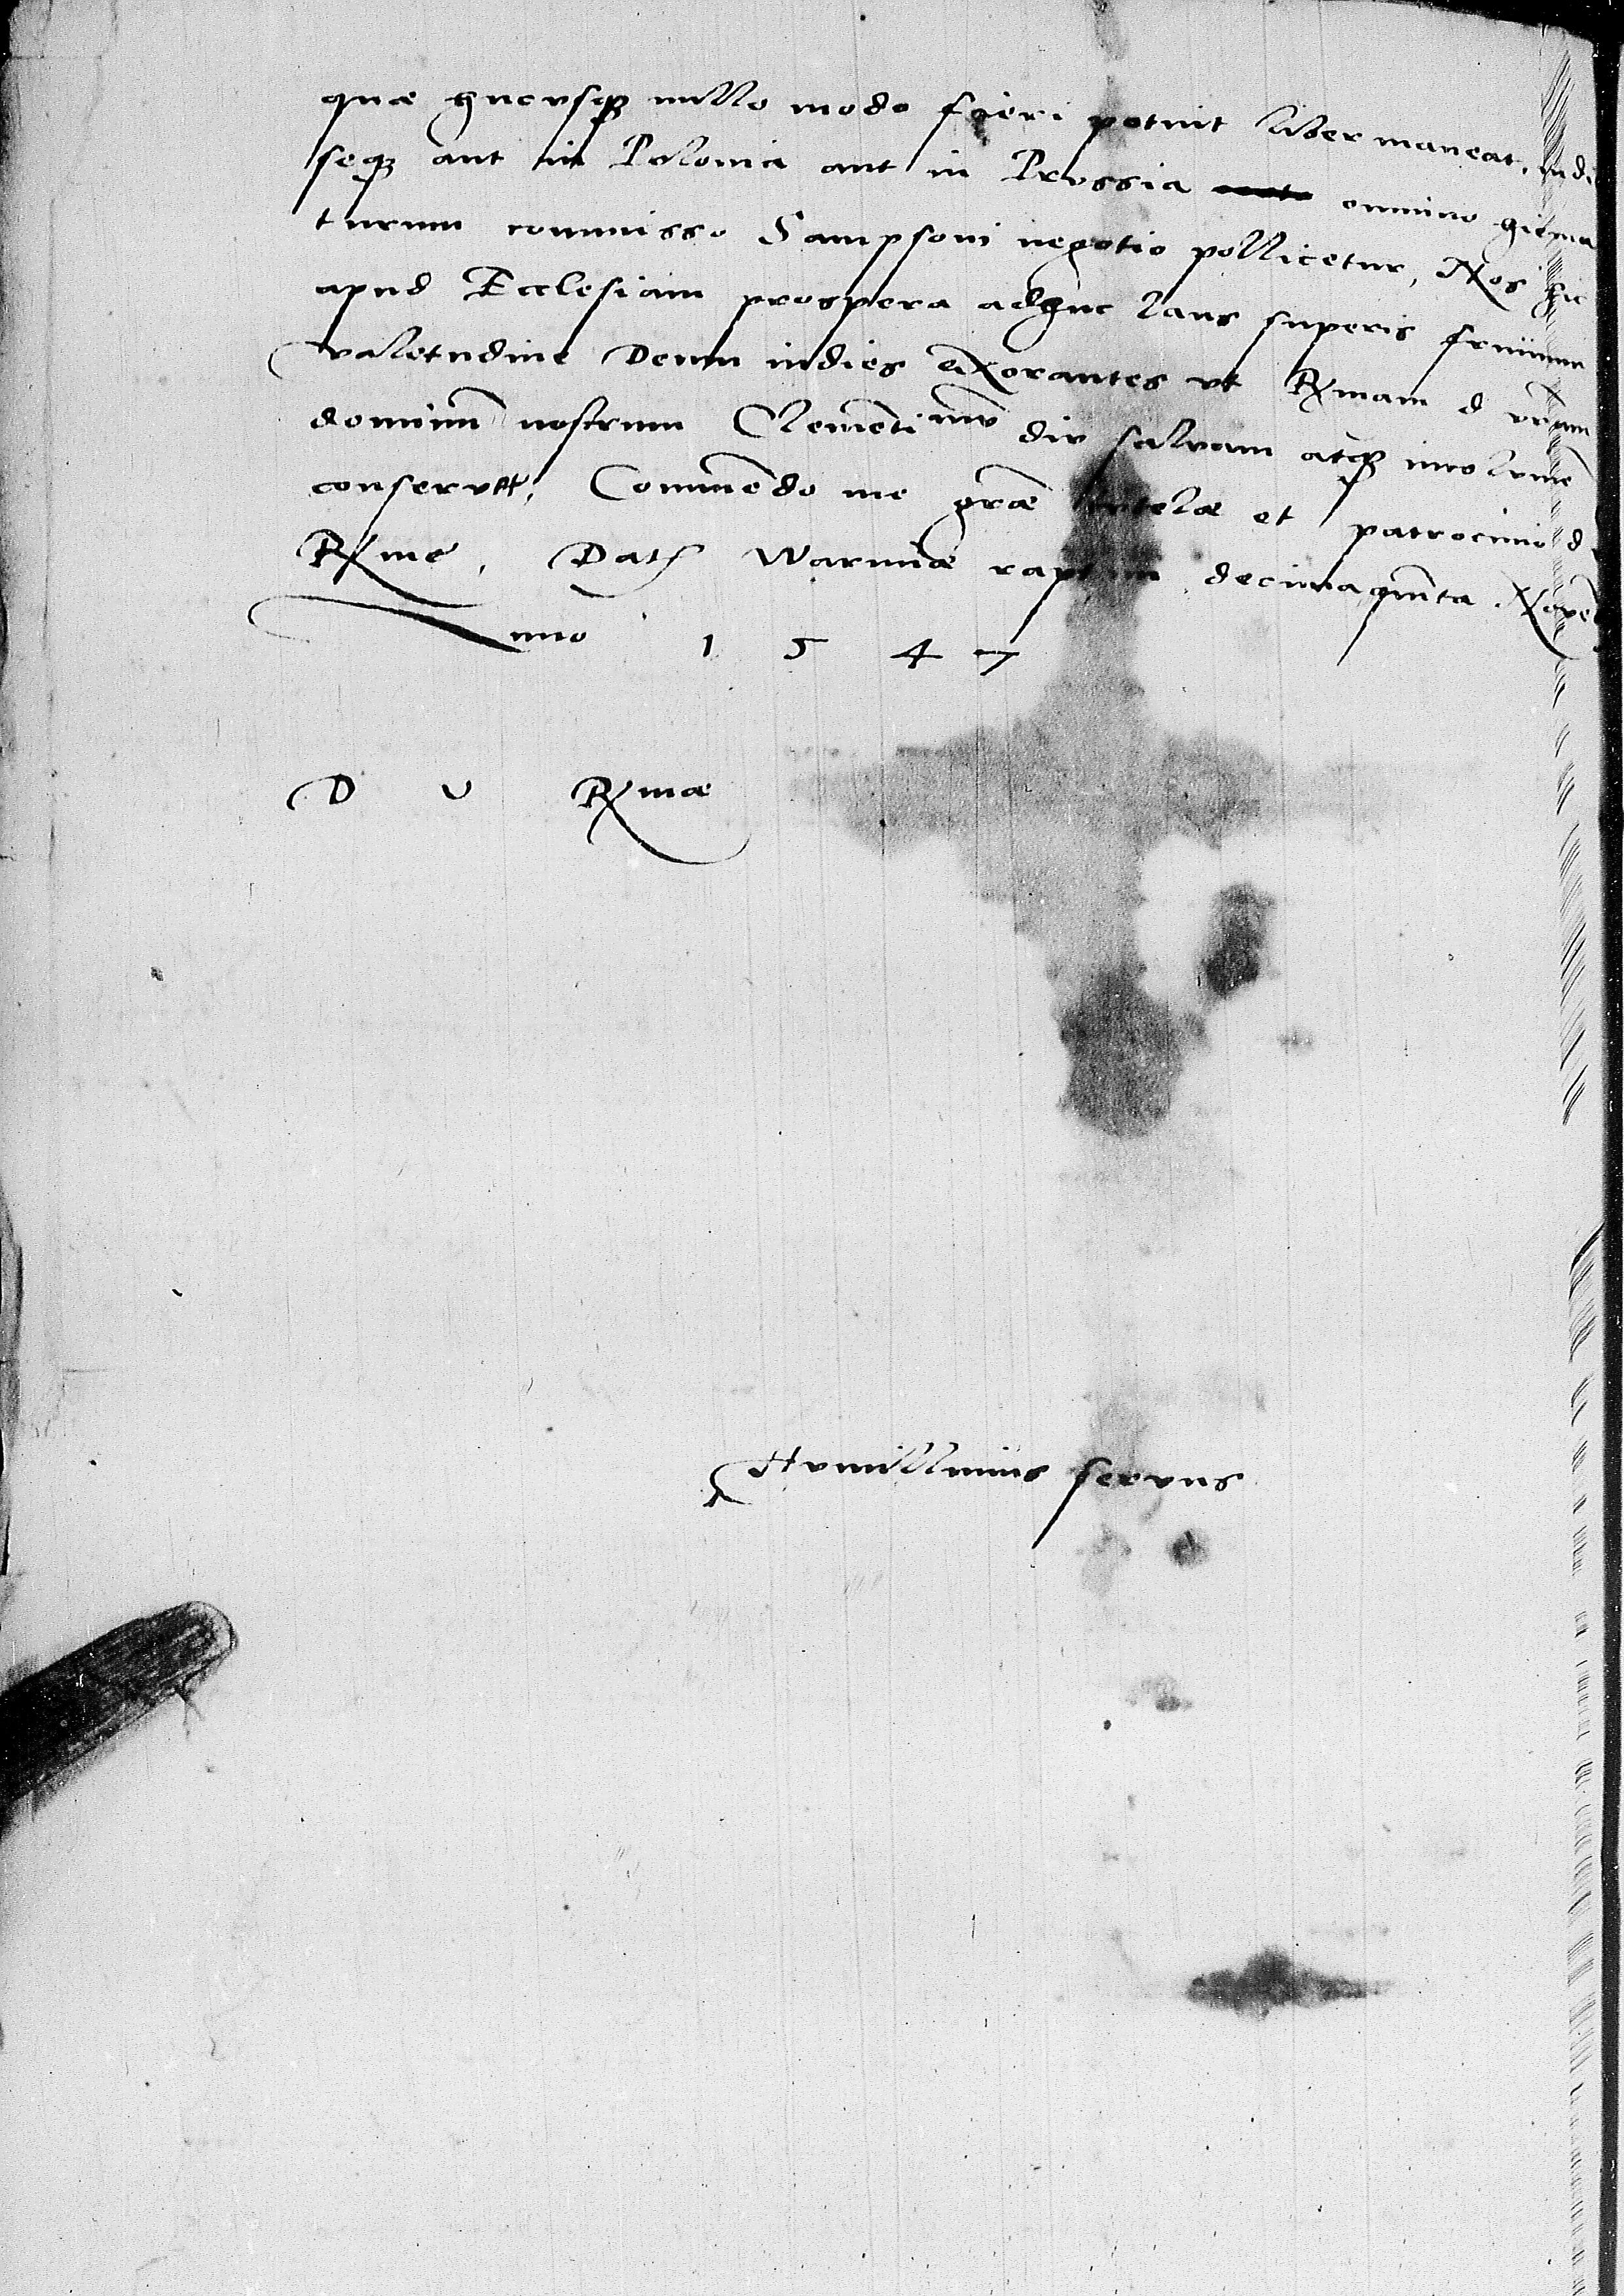 quæ hucvsqȝ nullo modo fieri potuit liber maneat, indi
seqȝ aut in Polonia aut in Prussia omnino hiema
turum commisso Sampsoni negotio pollicetur, Nos hic
apud Ecclesiam prospera adhuc laus superis fruimur
valetudine Deum indies exorantes vt Rxmam d vram
dominū nostrum Clemētimū div saluam atqȝ incolumē
conseruet, Commēdo me gratiæ tutelæ et patrocinio d
Rxme, Datȝ Warmiæ raptim decimaquīta Novē
Anno 1 5 4 7
D V Rxmæ
Humillimus seruus